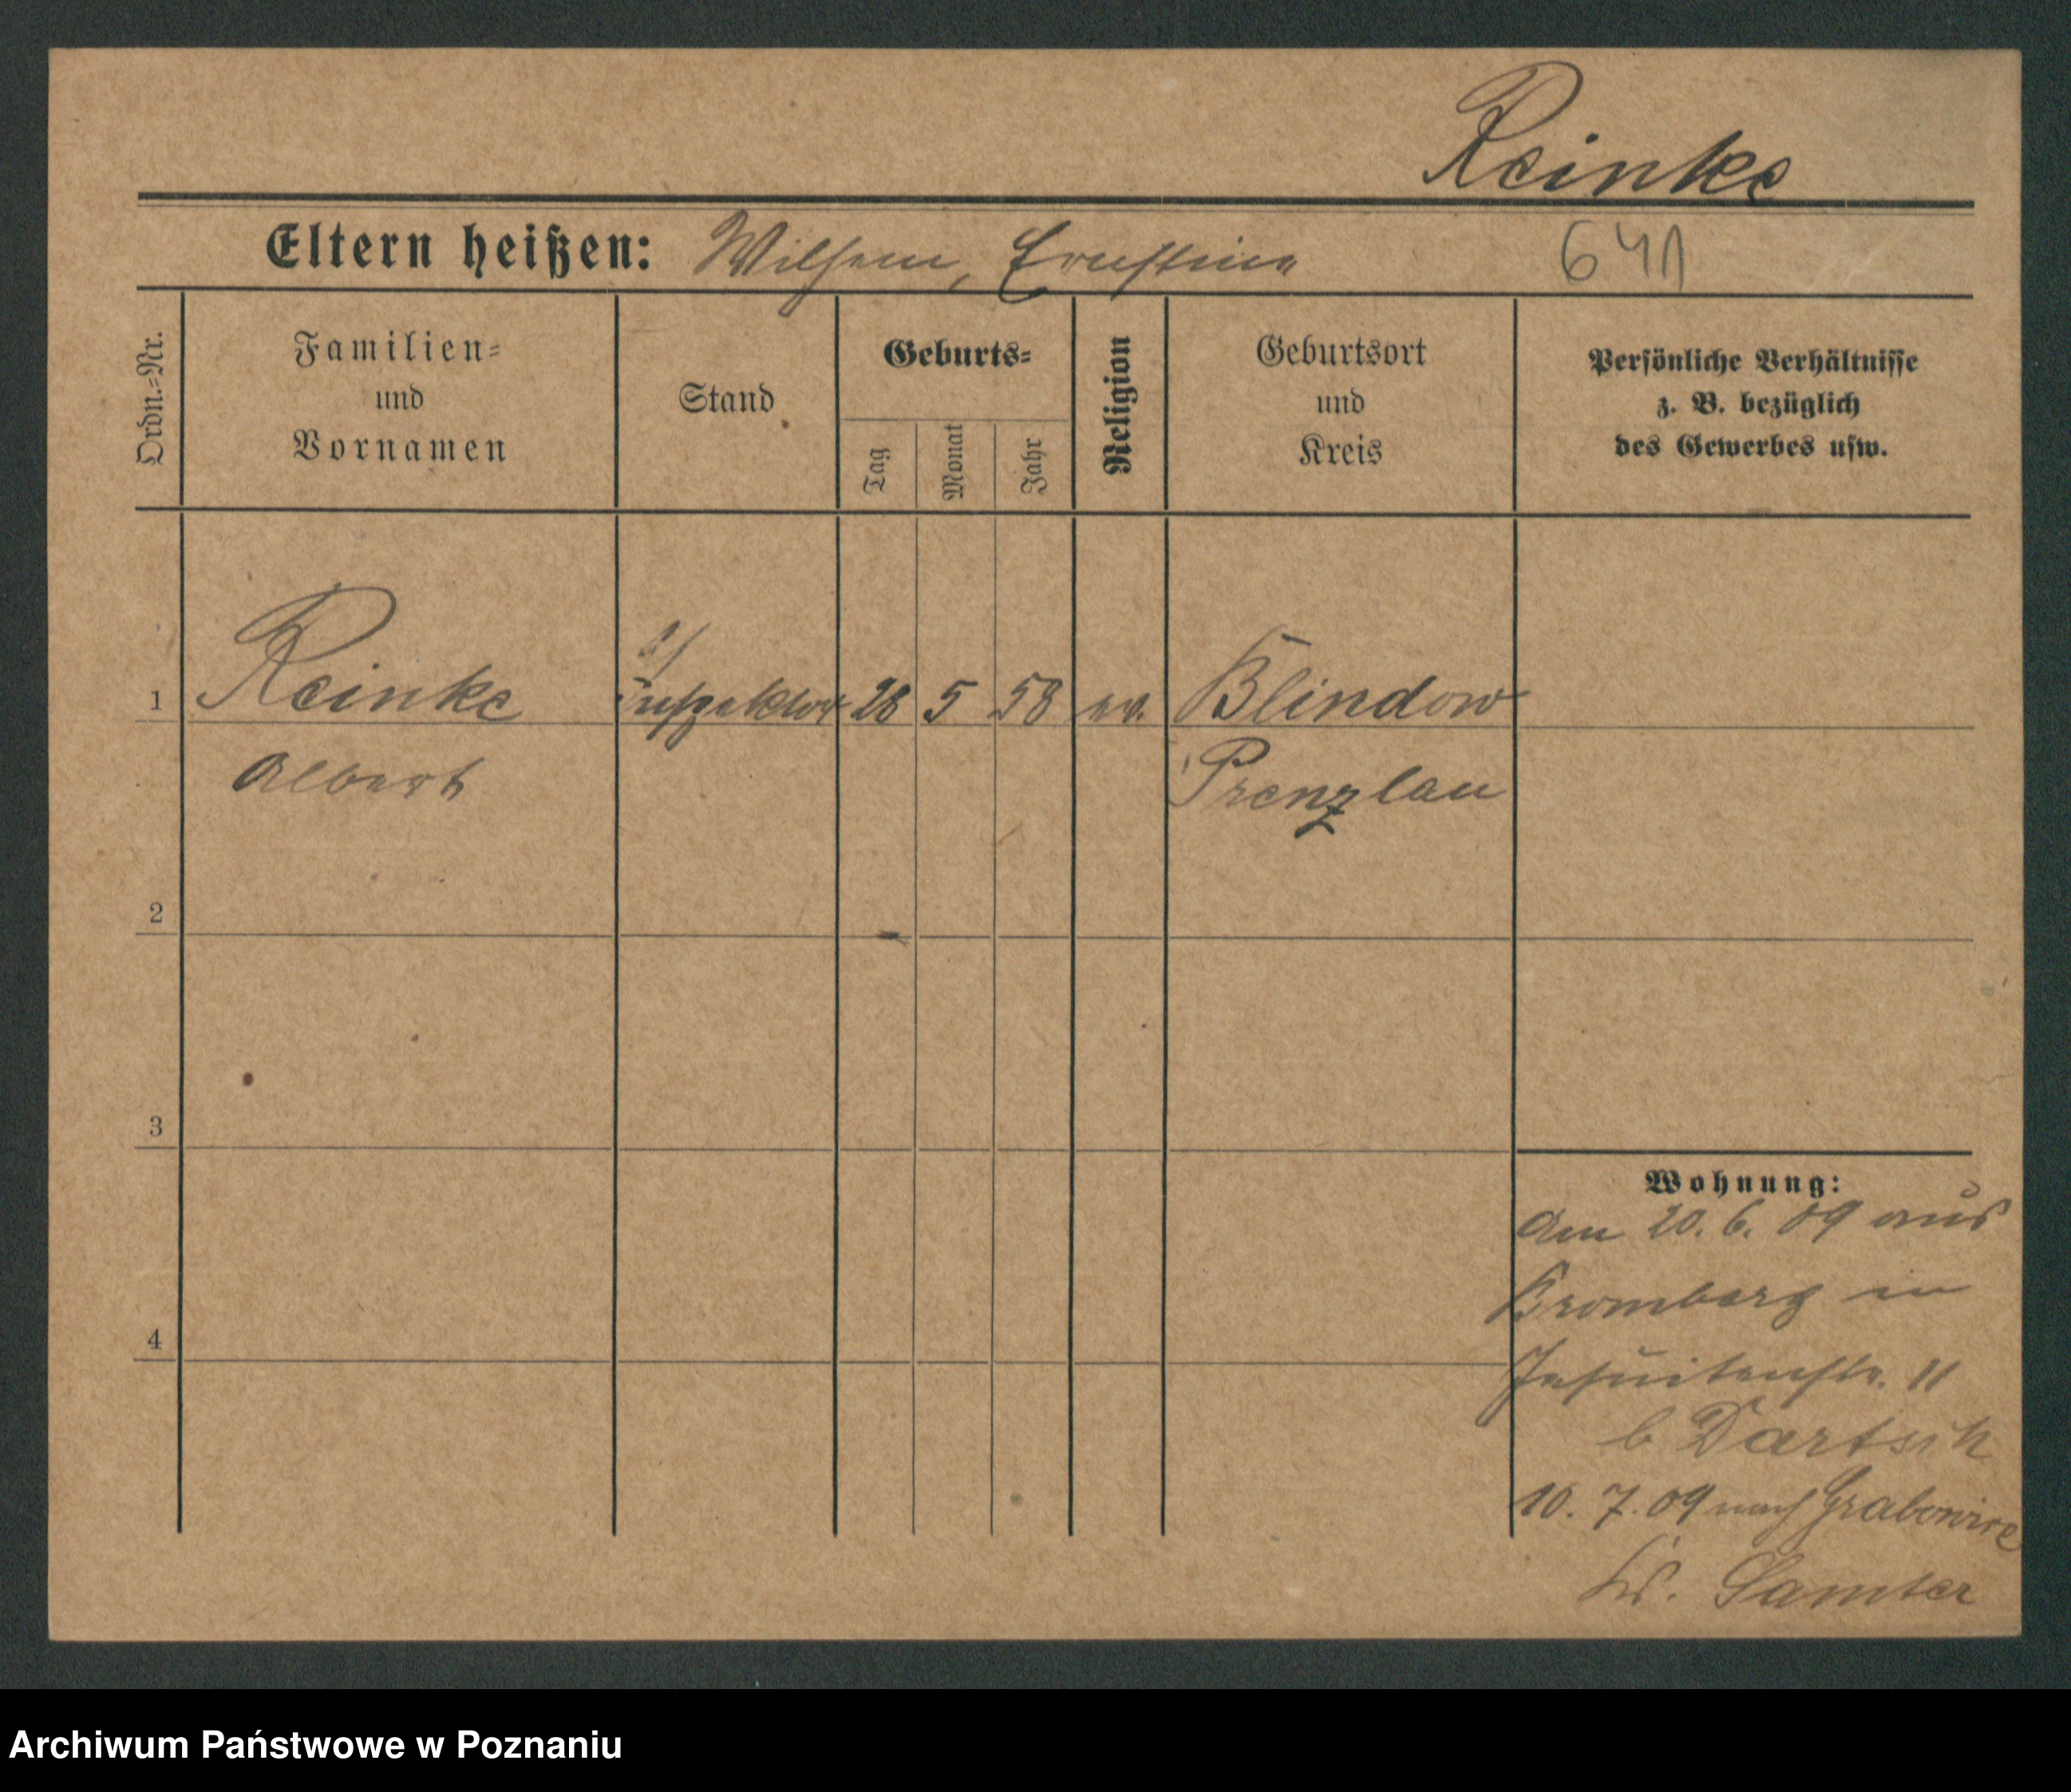 Reinke
Eltern heißen: Wilhem, Ernstine 641
Ordn.=Nr.
Familien=
und
Vornamen
Stand
Geburts=
Tag
Monat
Jahr
Religion
Geburtsort
und
Kreis
Persönliche Verhältnisse
z. B. bezüglich
des Gewerbes usw.
1 Reinke Inspektor 28 5 58 ev. Blindow
Albert Prenzlau
2
3
4
Wohnung:
Am 20. 6. 09 aus
Bromberg in
Jesuitenstr. 11
b Dartsch
10. 7. 09 nach
Kr. Samter
Archiwum Państwowe w Poznaniu